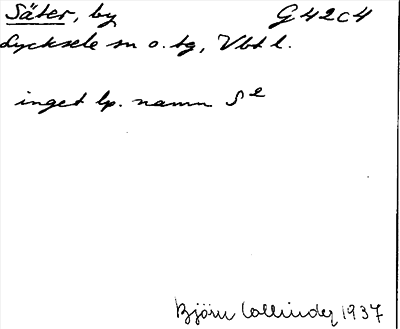 Säter, by G42c4
Lycksele sn o. tg, Vbtl.
inget lp. namn Sᵉ
Björn Collinder 1937